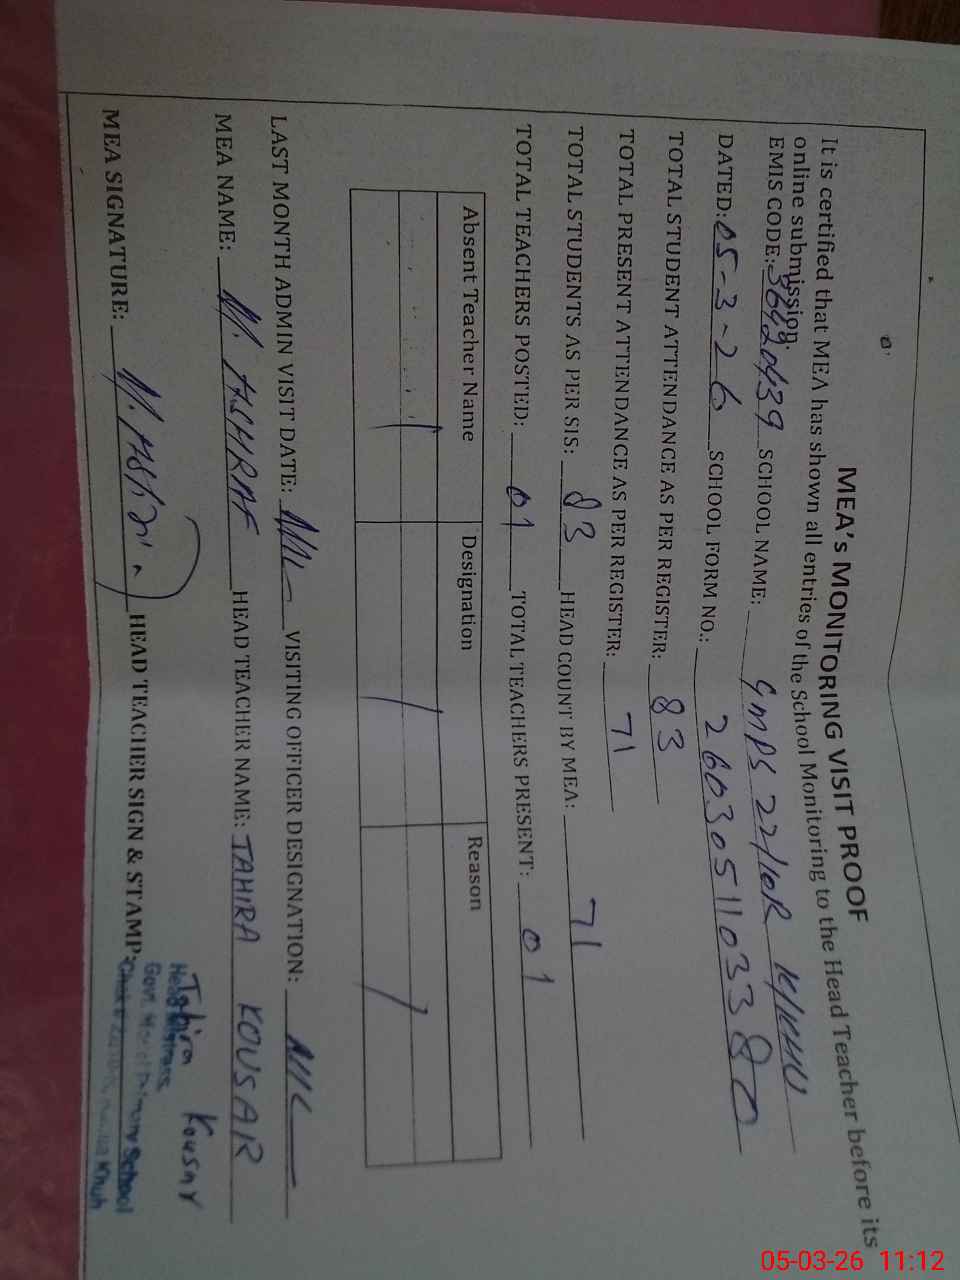 MEA's MONITORING VISIT PROOF
It is certified that MEA has shown all entries of the School Monitoring to the Head Teacher before its
online submission.
EMIS CODE: 36420439 SCHOOL NAME: GMPS 22/10R K/KHU
DATED: 05-3-26 SCHOOL FORM NO.: 2603051103380
TOTAL STUDENT ATTENDANCE AS PER REGISTER: 83
TOTAL PRESENT ATTENDANCE AS PER REGISTER: 71
TOTAL STUDENTS AS PER SIS: 83 HEAD COUNT BY MEA: 71
TOTAL TEACHERS POSTED: 01 TOTAL TEACHERS PRESENT: 01
Absent Teacher Name Designation Reason
LAST MONTH ADMIN VISIT DATE: NIL VISITING OFFICER DESIGNATION: NIL
MEA NAME: M. ASHRAF HEAD TEACHER NAME: TAHIRA KOUSAR
MEA SIGNATURE: M. Ashra HEAD TEACHER SIGN & STAMP:
Tahira Kousar
Head
Govt. Model Primary School
Chak Khuh
05-03-26 11:12